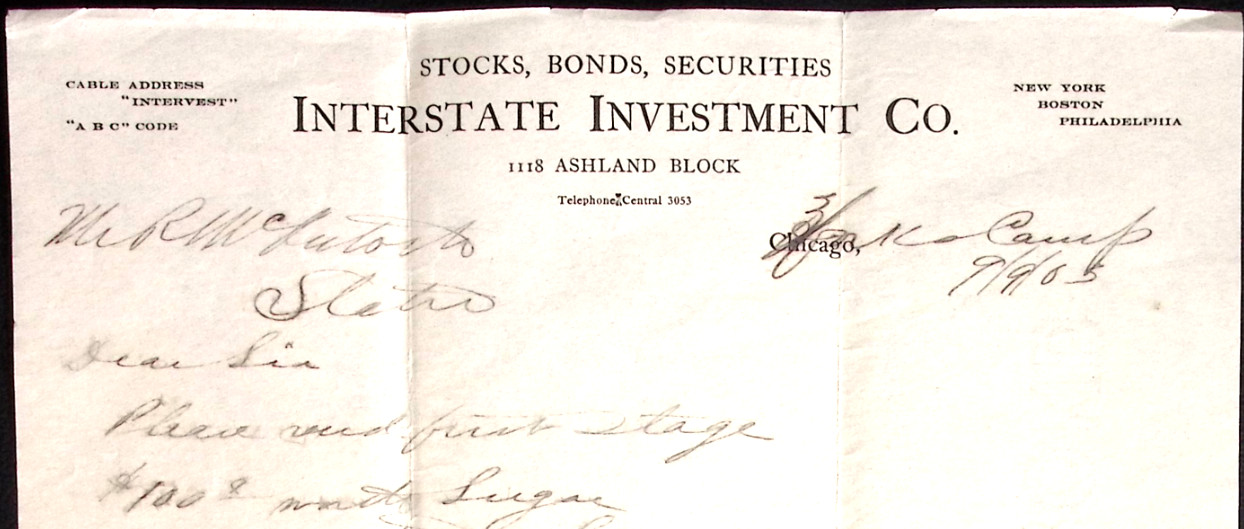 STOCKS, BONDS, SECURITIES
CABLE ADDRESS
"INTERVEST"
"A B C" CODE
INTERSTATE INVESTMENT CO.
NEW YORK
BOSTON
PHILADELPHIA
1118 ASHLAND BLOCK
Telephone, Central 3053
Chicago, Camp
9/9/03
Mr R McIntosh
Dear Sir
Please send first stage
$100 worth Sugar